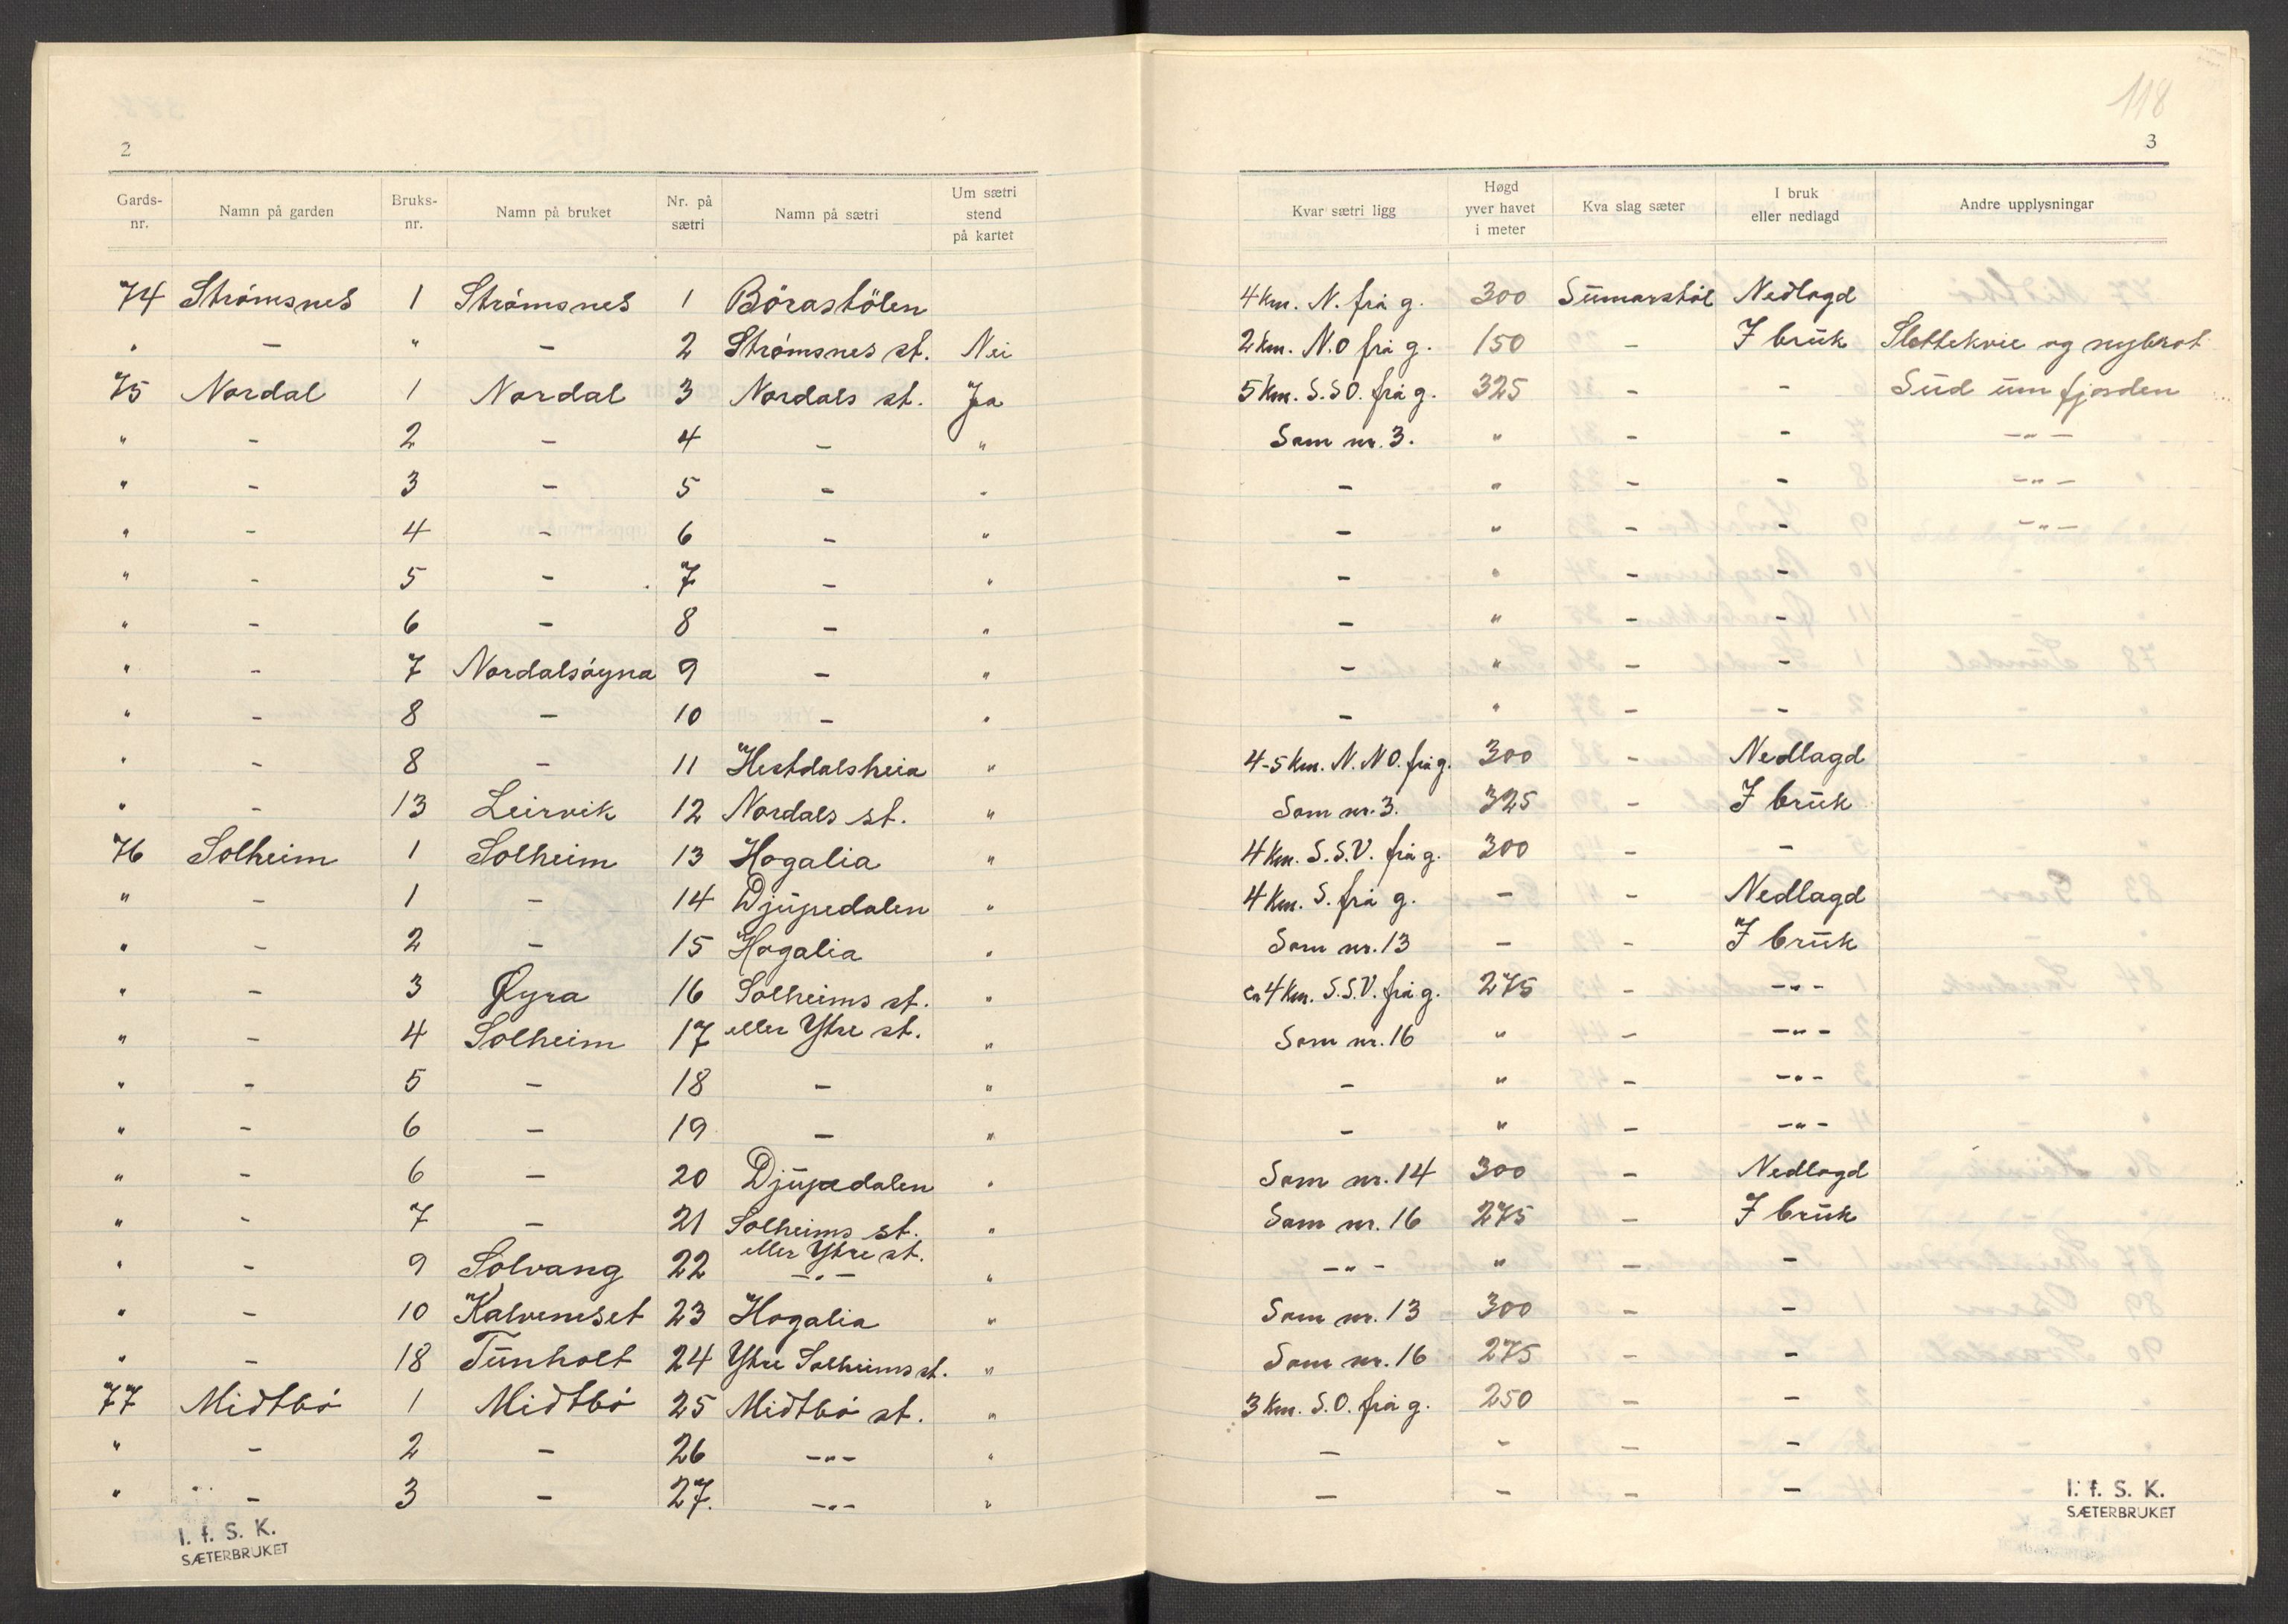 118
2
3
Gards-nr. | Namn på garden | Bruks-nr. | Namn på bruket | Nr. på sætri | Namn på sætri | Um sætri stend på kartet | Kvar sætri ligg | Høgd yver havet i meter | Kva slag sæter | I bruk eller nedlagd | Andre upplysningar
74 Strømsnes 1 Strømsnes 1 Börastölen 4 km. N. frå g. 300 Sumarstøl Nedlagd
" - " - 2 Strømsnes st. Nei 2 km. N.O frå g. 150 - I bruk Slottekvie og nybrot
75 Nordal 1 Nordal 3 Nordals st. Ja 5 km. S.SO. frå g. 325 - - Sud um fjorden
" - 2 - 4 - " Som nr. 3. " - - -"-
" - 3 - 5 - " - " - - -"-
" - 4 - 6 - " - " - - -"-
" - 5 - 7 - " - " - -
" - 6 - 8 - " - " - -
" - 7 Nordalsøyna 9 - " - " - -
" - 8 - 10 - " - " - -
" - 8 - 11 Hestdalsheia " 4-5 km. N.NO. frå g. 300 - Nedlagd
" - 13 Leirvik 12 Nordals st. " Som nr. 3. 325 - I bruk
76 Solheim 1 Solheim 13 Hogalia " 4 km. S.S.V. frå g. 300 - -
" - 1 - 14 Djupedalen " 4 km. S. frå g. - - Nedlagd
" - 2 - 15 Hogalia " Som nr. 13 - - I bruk
" - 3 Øyra 16 Solheims st. " ca 4 km. S.S.V. frå g. 275 - -"-
" - 4 Solheim 17 eller Ytre st. " Som nr. 16 " - -"-
" - 5 - 18 - " - " - -"-
" - 6 - 19 - " - " - -"-
" - 6 - 20 Djupedalen " Som nr. 14 300 - Nedlagd
" - 7 - 21 Solheims st. " Som nr. 16 275 - I bruk
eller Ytre st.
" - 9 Solvang 22 -"- " -"- " - -
" - 10 Kalveneset 23 Hogalia " Som nr. 13 300 - -
" - 18 Tunholt 24 Ytre Solheims st. " Som nr. 16 275 - -
77 Midtbø 1 Midtbø 25 Midtbø st. " 3 km. S.O. frå g. 250 - -
" - 2 - 26 -"- " - - - -
" - 3 - 27. -"- " - - - -
I. f. S. K.
SÆTERBRUKET
I. f. S. K.
SÆTERBRUKET